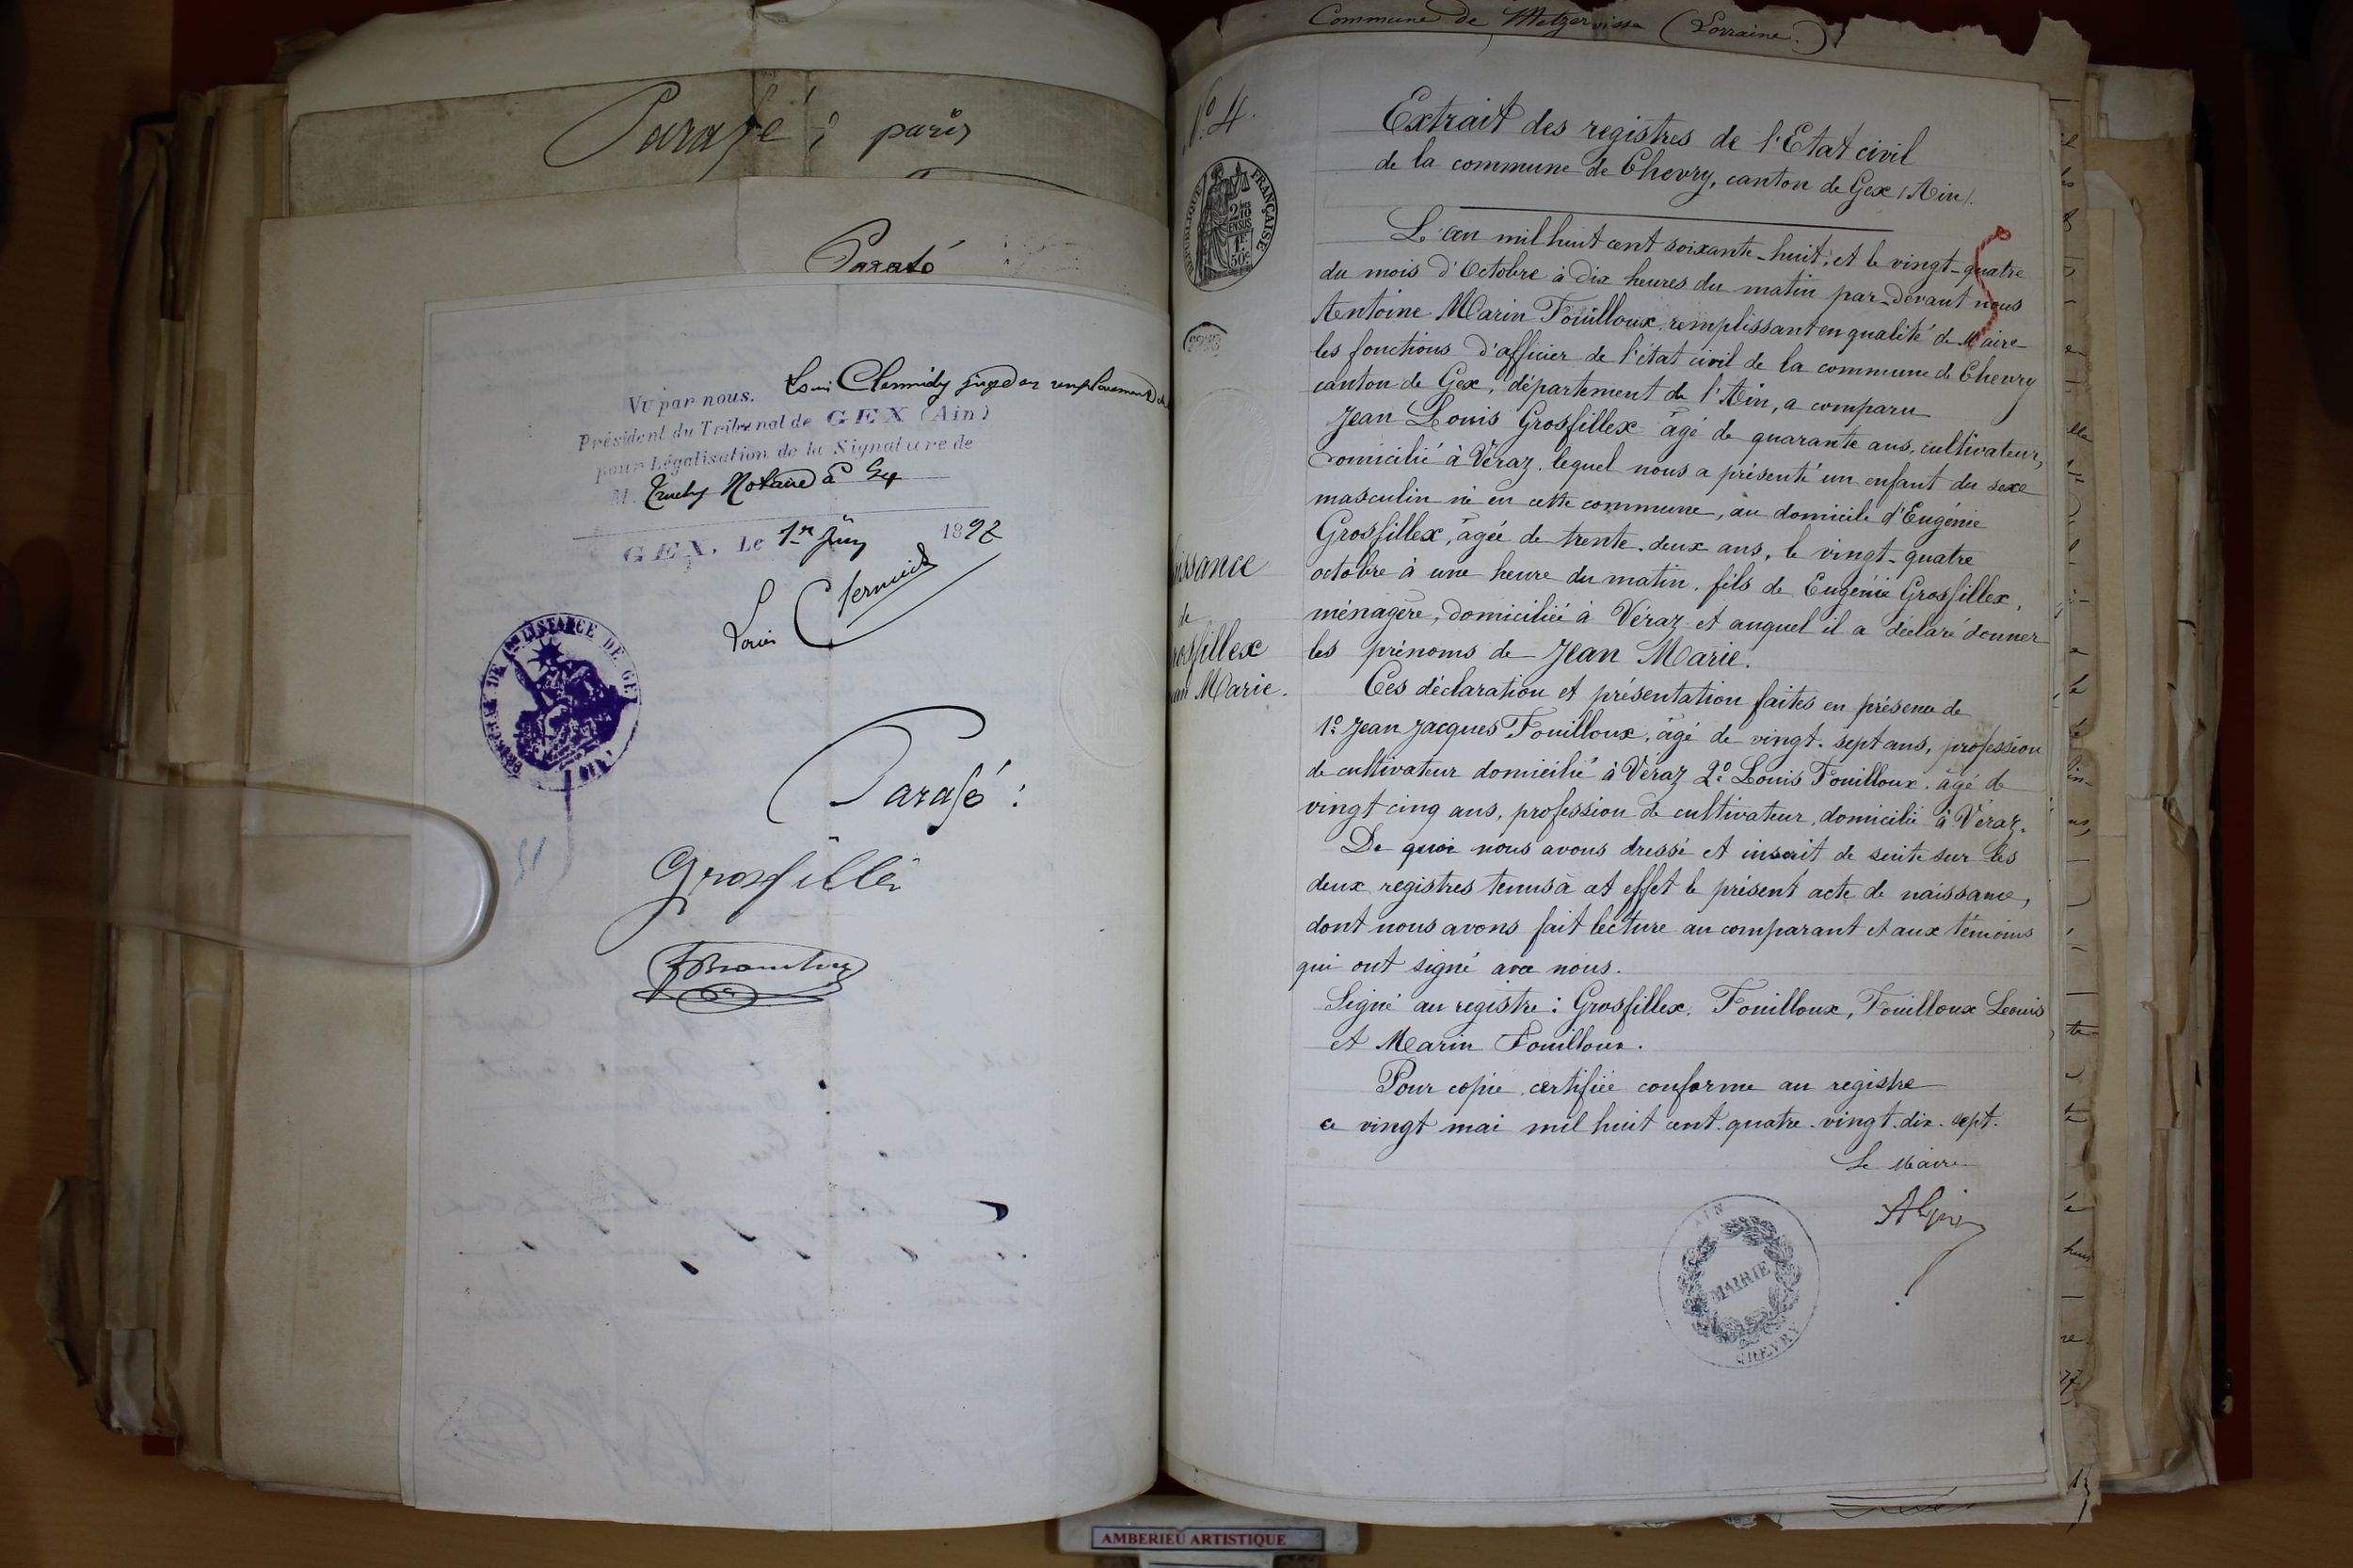 Parafé : paris
Parafé
Vu par nous. Louis Clermidy juge en remplacement
Président du Tribunal de GEX (Ain)
pour Légalisation de la Signature de
M. Notaire à Gex
GEX, Le 1er Juin 1897
Louis
GREFFE DE 1re INSTANCE DE GEX
(AIN)
Parafé :
Grosfillex
Commune de Metzervisse (Lorraine.)
N°. 4.
Extrait des registres de l'Etat civil
de la commune de Chevry, canton de Gex (Ain).
RÉPUBLIQUE FRANÇAISE
2/10es
EN SUS
1F.
50c
L'an mil huit cent soixante-huit, et le vingt-quatre
du mois d'Octobre à dix heures du matin par-devant nous
Antoine Marin Fouilloux, remplissant en qualité de Maire
les fonctions d'officier de l'état civil de la commune de Chevry
canton de Gex, département de l'Ain, a comparu
Jean Louis Grosfillex âgé de quarante ans, cultivateur,
domicilié à Véraz, lequel nous a présenté un enfant du sexe
masculin né en cette commune, au domicile d'Eugénie
Grosfillex, âgée de trente-deux ans, le vingt-quatre
octobre à une heure du matin, fils de Eugénie Grosfillex,
ménagère, domiciliée à Véraz et auquel il a déclaré donner
les prénoms de Jean Marie.
issance
de
rosfillex
an Marie.
Ces déclaration et présentation faites en présence de
1° Jean Jacques Fouilloux, âgé de vingt-sept ans, profession
de cultivateur domicilié à Véraz 2° Louis Fouilloux, âgé de
vingt cinq ans, profession de cultivateur, domicilié à Véraz.
De quoi nous avons dressé et inscrit de suite sur les
deux registres tenus à cet effet le présent acte de naissance,
dont nous avons fait lecture au comparant et aux témoins
qui ont signé avec nous.
Signé au registre : Grosfillex, Fouilloux, Fouilloux Louis
et Marin Fouilloux.
Pour copie certifiée conforme au registre
ce vingt mai mil huit cent quatre-vingt-dix-sept.
Le Maire
AIN
MAIRIE
CHEVRY
AMBERIEU ARTISTIQUE